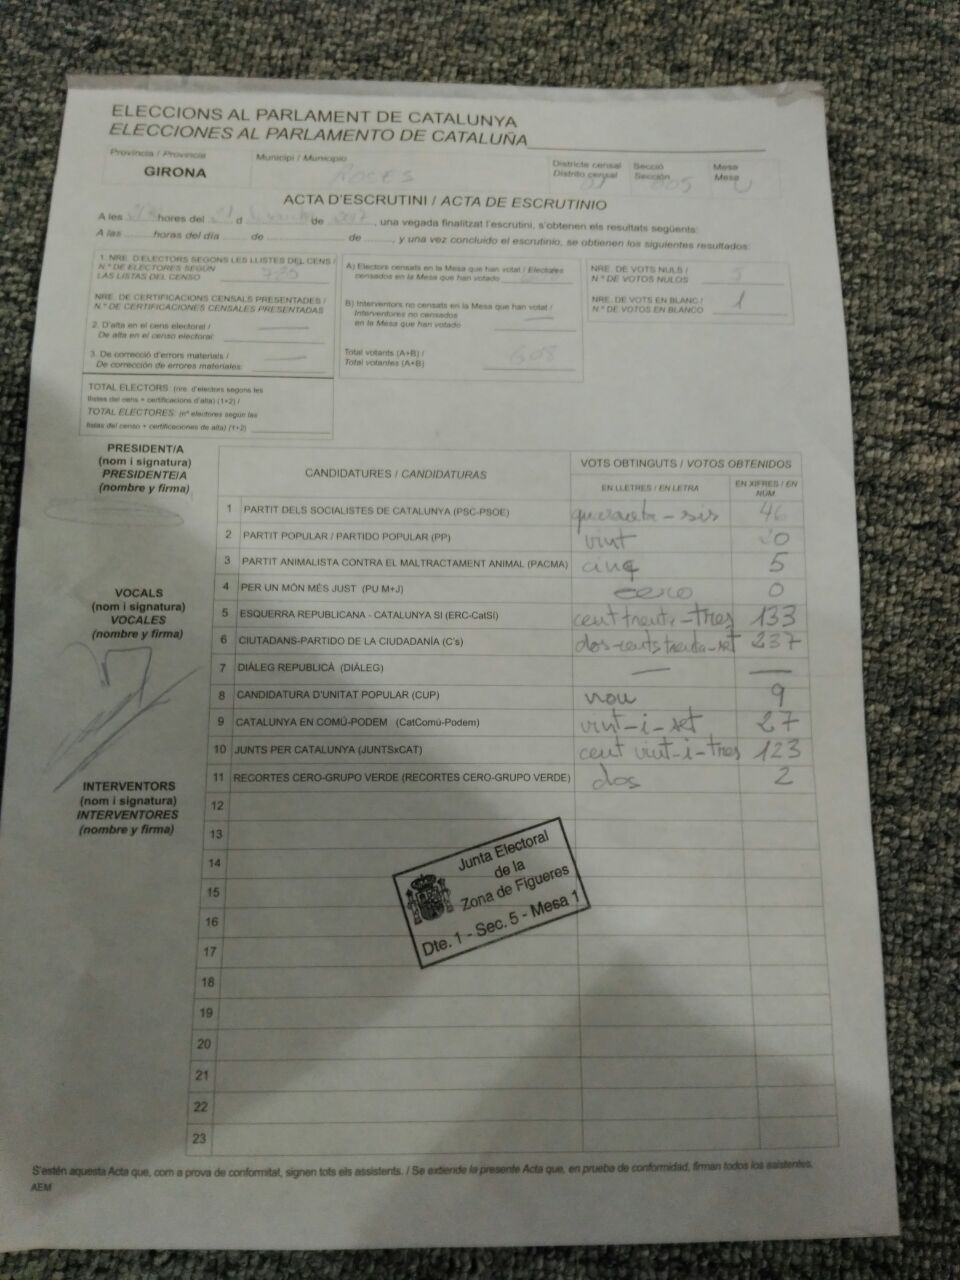 ELECCIONS AL PARLAMENT DE CATALUNYA
ELECCIONES AL PARLAMENTO DE CATALUÑA
Província / Provincia
GIRONA
Municipi / Municipio
ROSES
Districte censal
Distrito censal
01
Secció
Sección
005
Mesa
Mesa
U
ACTA D'ESCRUTINI / ACTA DE ESCRUTINIO
A les hores del 21 d de 2017, una vegada finalitzat l'escrutini, s'obtenen els resultats següents:
A las horas del día de de , y una vez concluido el escrutinio, se obtienen los siguientes resultados:
1. NRE. D'ELECTORS SEGONS LES LLISTES DEL CENS /
N.º DE ELECTORES SEGÚN
LAS LISTAS DEL CENSO
NRE. DE CERTIFICACIONS CENSALS PRESENTADES /
N.º DE CERTIFICACIONES CENSALES PRESENTADAS
2. D'alta en el cens electoral /
De alta en el censo electoral:
3. De correcció d'errors materials /
De corrección de errores materiales:
TOTAL ELECTORS: (nre. d'electors segons les
llistes del cens + certificacions d'alta) (1+2) /
TOTAL ELECTORES: (nº electores según las
listas del censo + certificaciones de alta) (1+2)
A) Electors censats en la Mesa que han votat / Electores
censados en la Mesa que han votado
B) Interventors no censats en la Mesa que han votat /
Interventores no censados
en la Mesa que han votado
Total votants (A+B) /
Total votantes (A+B)
608
NRE. DE VOTS NULS /
N.º DE VOTOS NULOS
5
NRE. DE VOTS EN BLANC /
N.º DE VOTOS EN BLANCO
1
PRESIDENT/A
(nom i signatura)
PRESIDENTE/A
(nombre y firma)
VOCALS
(nom i signatura)
VOCALES
(nombre y firma)
INTERVENTORS
(nom i signatura)
INTERVENTORES
(nombre y firma)
CANDIDATURES / CANDIDATURAS
VOTS OBTINGUTS / VOTOS OBTENIDOS
EN LLETRES / EN LETRA
EN XIFRES / EN NÚM.
1 PARTIT DELS SOCIALISTES DE CATALUNYA (PSC-PSOE) quaranta-sis 46
2 PARTIT POPULAR / PARTIDO POPULAR (PP) vint 20
3 PARTIT ANIMALISTA CONTRA EL MALTRACTAMENT ANIMAL (PACMA) cinq 5
4 PER UN MÓN MÉS JUST (PU M+J) cero 0
5 ESQUERRA REPUBLICANA - CATALUNYA SI (ERC-CatSí) cent trenta-tres 133
6 CIUTADANS-PARTIDO DE LA CIUDADANÍA (C's) dos-cents trenta-set 237
7 DIÀLEG REPUBLICÀ (DIÀLEG) — —
8 CANDIDATURA D'UNITAT POPULAR (CUP) nou 9
9 CATALUNYA EN COMÚ-PODEM (CatComú-Podem) vint-i-set 27
10 JUNTS PER CATALUNYA (JUNTSxCAT) cent vint-i-tres 123
11 RECORTES CERO-GRUPO VERDE (RECORTES CERO-GRUPO VERDE) dos 2
12
13
14
15
16
17
18
19
20
21
22
23
Junta Electoral
de la
Zona de Figueres
Dte. 1 - Sec. 5 - Mesa 1
S'estén aquesta Acta que, com a prova de conformitat, signen tots els assistents. / Se extiende la presente Acta que, en prueba de conformidad, firman todos los asistentes.
AEM